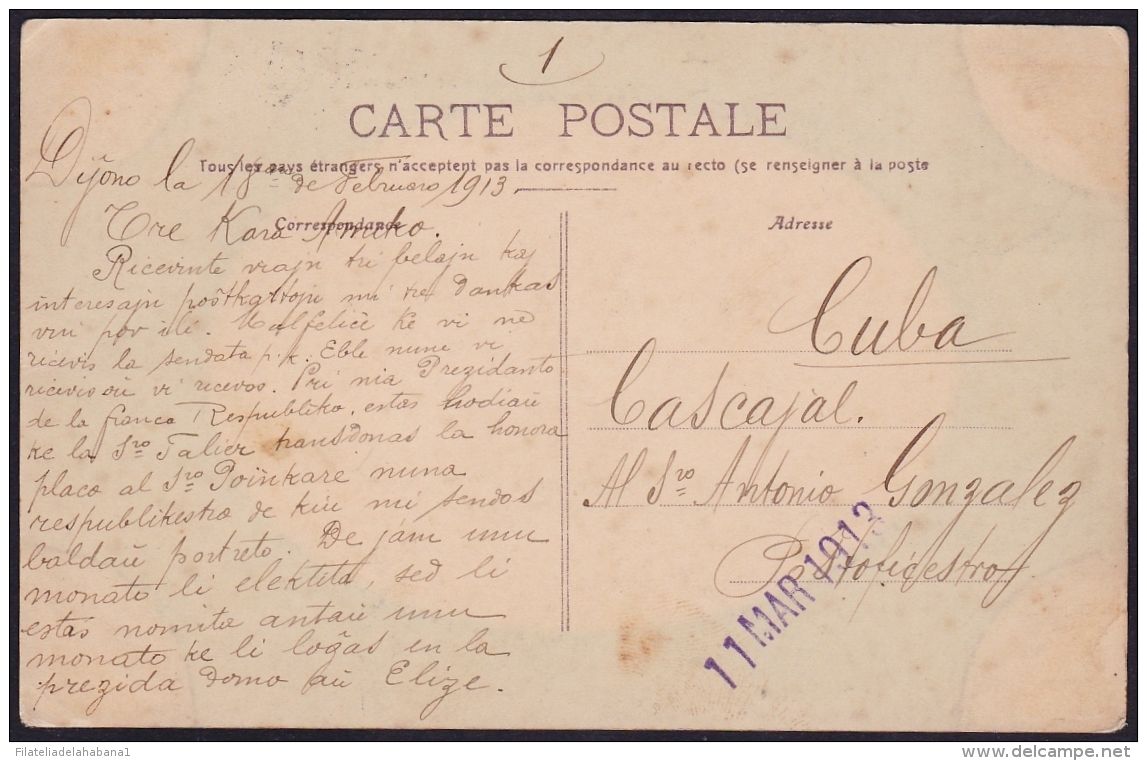 1
CARTE POSTALE
Tous les pays étrangers n'acceptent pas la correspondance au recto (se renseigner à la poste
Dijôno la 18an de Februaro 1913.
Correspondance
Adresse
Tre Kara Amiko.
Ricevinte viajn tri belajn kaj
interesajn poŝtkartojn mi tre dankas
vin por ili. Malfeliĉe ke vi ne
ricevis la sendata p.k. Eble nune vi
ricevis aŭ vi ricevos. Pri nia Prezidanto
de la franca Respubliko, estas hodiaŭ
ke la Sro Falier transdonas la honora
placo al Sro Poinkare nuna
respublikestro de kiu mi sendos
baldaŭ portreto. De jam unu
monato li elektita, sed li
estas nomita antaŭ unu
monato ke li loĝas en la
prezida domo aŭ Elize.
Cuba
Cascajal.
Al Sro Antonio Gonzalez
Poŝtoficestro
11 MAR 1913
Filateliadelahabana1
http://www.delcampe.net